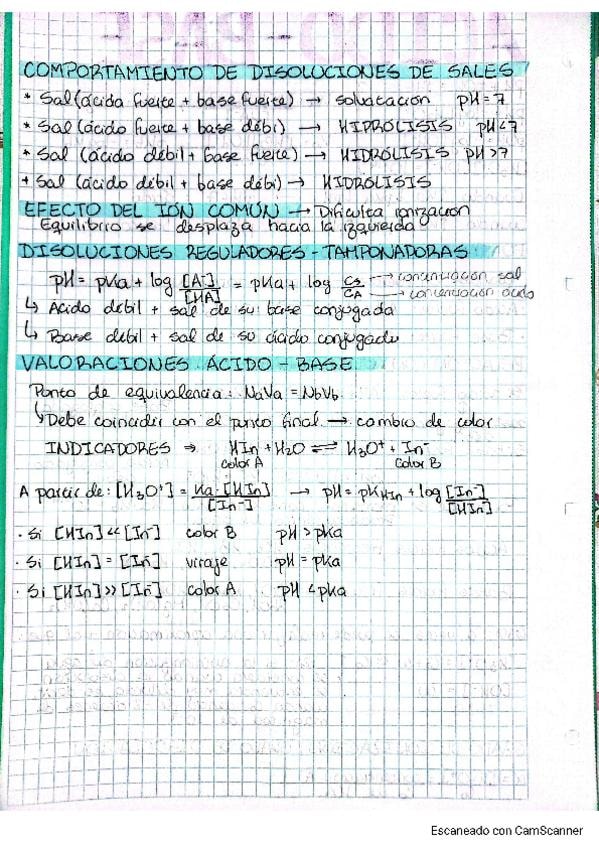 COMPORTAMIENTO DE DISOLUCIONES DE SALES
* Sal (ácida fuerte + base fuerte) → solvatación pH = 7
* Sal (ácido fuerte + base débi) → HIDRÓLISIS pH < 7
* Sal (ácido débil + base fuerte) → HIDRÓLISIS pH > 7
+ Sal (ácido débil + base débi) → HIDRÓLISIS
EFECTO DEL IÓN COMÚN → Dificulta ionización
Equilibrio se desplaza hacia la izquierda
DISOLUCIONES REGULADORES - TAMPONADORAS
pH = pKa + log [A⁻]/[HA] = pKa + log Cs/CA → concentración sal → concentración ácido
↳ Ácido débil + sal de su base conjugada
↳ Base débil + sal de su ácido conjugado
VALORACIONES ÁCIDO - BASE
Punto de equivalencia: NaVa = NbVb
↳ Debe coincidir con el punto final → cambio de color
INDICADORES ⇒ HIn + H2O ⇌ H3O⁺ + In⁻
color A Color B
A partir de: [H3O⁺] = Ka·[HIn]/[In⁻] → pH = pKHIn + log [In⁻]/[HIn]
· Si [HIn] << [In⁻] color B pH > pKa
· Si [HIn] = [In⁻] viraje pH = pKa
· Si [HIn] >> [In⁻] color A pH < pKa
Escaneado con CamScanner